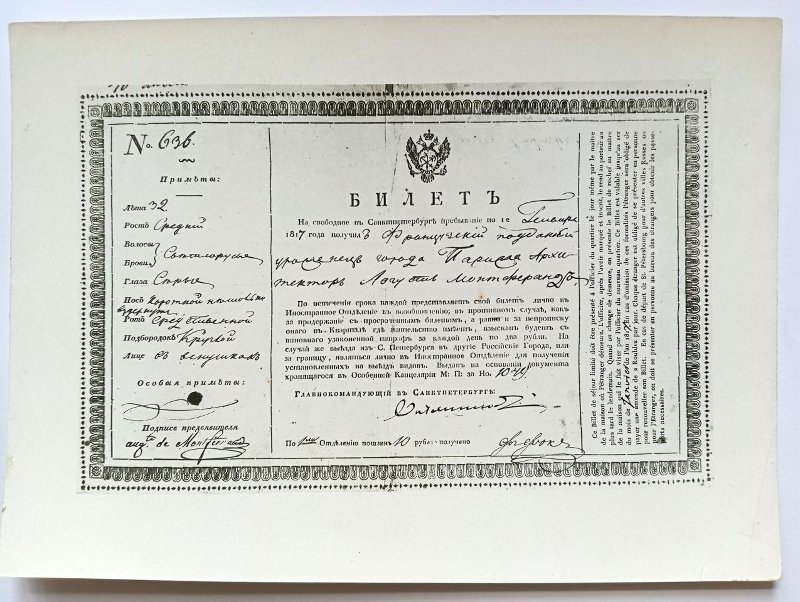 No. 636.
Примѣты:
Лѣта 32
Ростъ Средній
Волосы
Брови Свѣтлорусые
Глаза Сѣрые
Носъ Короткой
Ротъ Средственной
Подбородокъ Круглой
Лице въ веснушкахъ
Особыя примѣты:
Подпись предъявителя
augte de Montferrand
БИЛЕТЪ
На свободное въ Санктпетербургѣ пребываніе по 1е Генваря
1817 года получилъ Французскій подданный
уроженецъ города Парижа Архи-
текторъ Августъ Монтферандъ
По истеченіи срока каждой представляетъ свой билетъ лично въ
Иностранное Отдѣленіе къ возобновленію; въ противномъ случаѣ, какъ
за продержаніе съ просроченнымъ билетомъ, а равно и за непрописку
онаго въ Кварталѣ гдѣ жительство имѣетъ, взысканъ будетъ съ
виновнаго узаконенной штрафъ за каждой день по два рубли. На
случай же выѣзда изъ С. Петербурга въ другіе Россійскіе Города, или
за границу, являться лично въ Иностранное Отдѣленіе для полученія
установленныхъ на выѣздъ видовъ. Выданъ на основаніи документа
хранящагося въ Особенной Канцеляріи М: П: за No.
ГЛАВНОКОМАНДУЮЩІЙ ВЪ САНКТПЕТЕРБУРГѢ:
По Отдѣленію пошлинъ 10 рубл: получено
Ce Billet de séjour limité doit être présenté à l'officier du quartier le jour même par le maître
de la maison où l'étranger demeure. L'officier, après l'avoir marqué et inscrit, le rend au porteur au
plus tard le lendemain. Quand on change de demeure, on présente le Billet de rechef au maître
de la maison qui le fait viser par l'officier du nouveau quartier. Ce Billet est valable jusqu'au 1er
du mois de Janvier de l'an 1817. En cas d'omission de ces formalités l'étranger sera obligé de
payer une amende de 2 Roubles par jour. Chaque étranger est obligé de se présenter en personne
pour renouveller son Billet. En cas de départ de St. Pétersbourg pour d'autres villes Russes ou
pour l'Etranger, on doit se présenter en personne au bureau des étrangers pour obtenir les passe-
ports nécessaires.